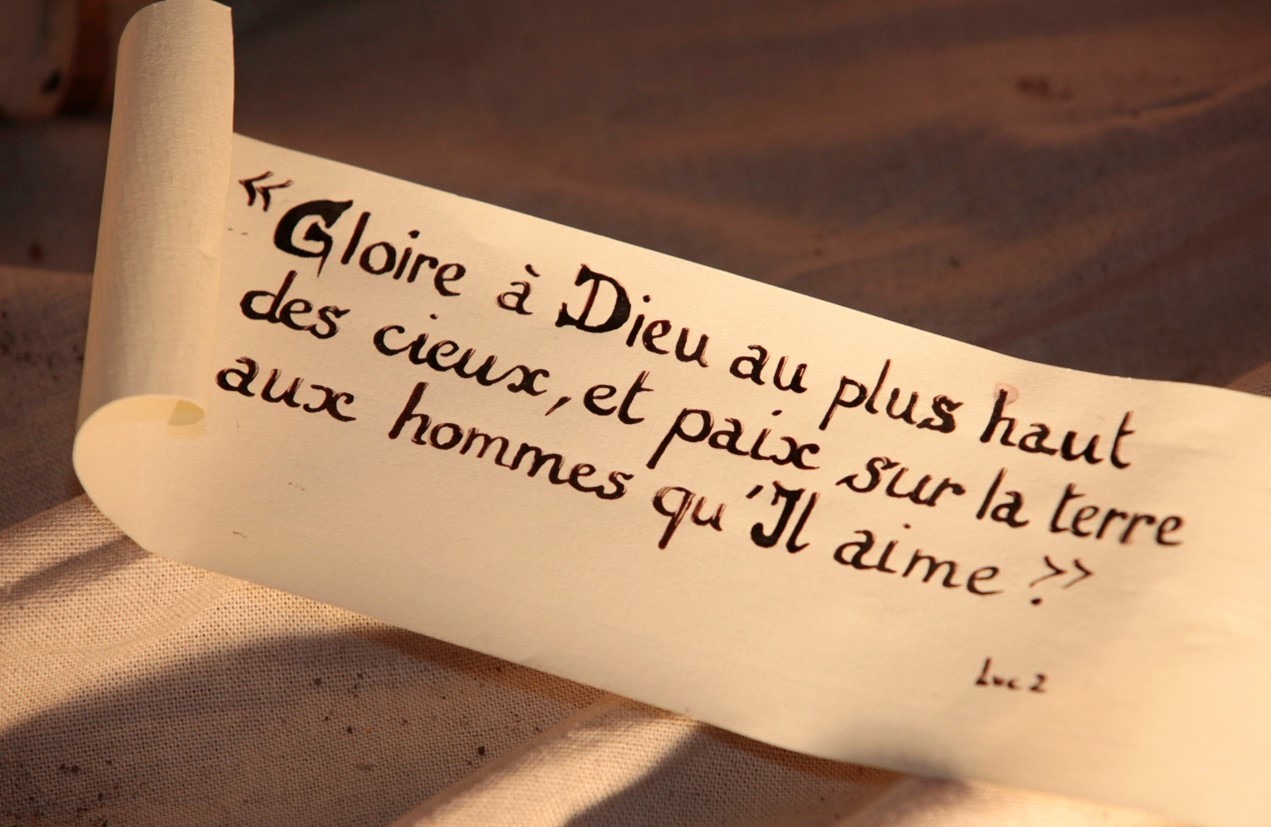 « Gloire à Dieu au plus haut
des cieux, et paix sur la terre
aux hommes qu'Il aime. »
Luc 2